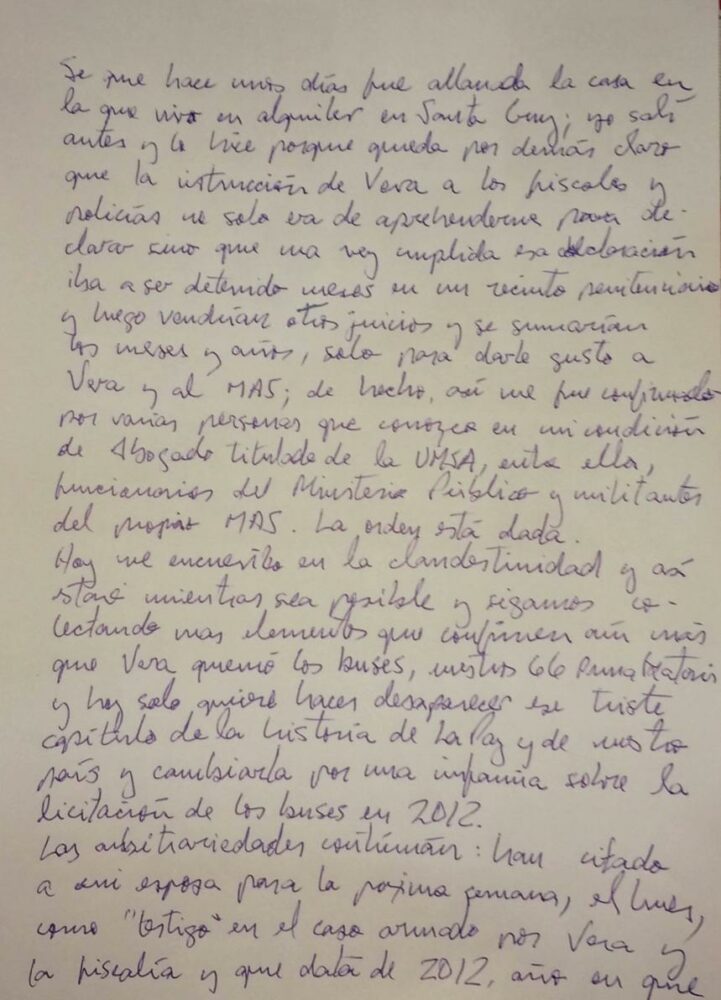 Se que hace unos días fue allanada la casa en
la que vivo en alquiler en Santa Cruz; yo salí
antes y lo hice porque queda por demás claro
que la instrucción de Vera a los fiscales y
policías no solo era de aprehenderme para de-
clarar sino que una vez cumplida esa declaración
iba a ser detenido meses en un recinto penitenciario
y luego vendrían otros juicios y se sumarían
los meses y años, solo para darle gusto a
Vera y al MAS; de hecho, así me fue confirmado
por varias personas que conozco en mi condición
de Abogado titulado de la UMSA, entre ellas,
funcionarios del Ministerio Público y militantes
del propio MAS. La orden está dada.
Hoy me encuentro en la clandestinidad y así
estaré mientras sea posible y sigamos co-
lectando mas elementos que confirmen aún más
que Vera quemó los buses, nuestros 66 PumaKataris
y hoy solo quiere hacer desaparecer ese triste
capítulo de la historia de La Paz y de nuestro
país y cambiarla por una infamia sobre la
licitación de los buses en 2012.
Las arbitrariedades continúan: han citado
a mi esposa para la próxima semana, el lunes,
como "testigo" en el caso armado por Vera y
la fiscalía y que data de 2012, año en que